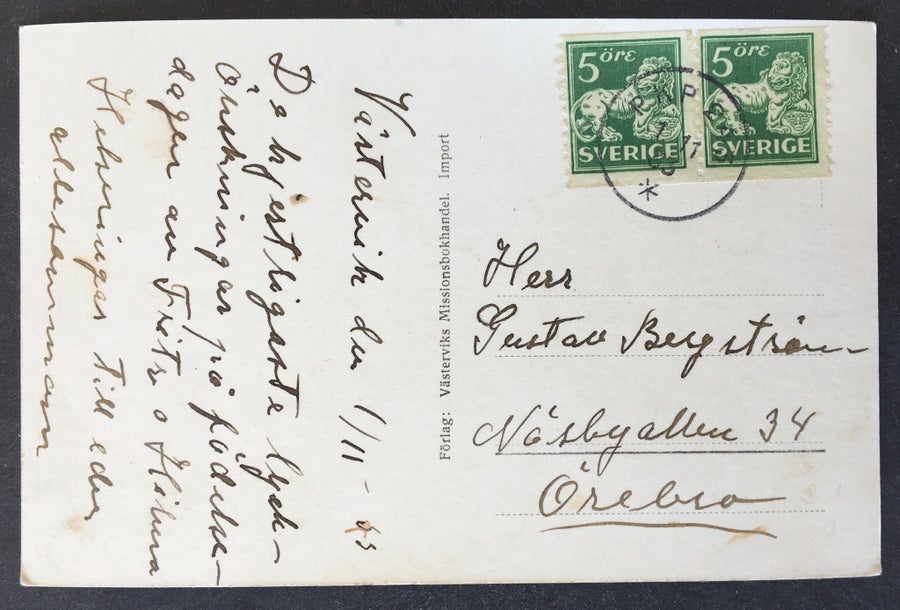 Västervik den 1/11 - 33
De hjertligaste lyck-
önskningar på födelse-
dagen av Fritz o
Helsningar till eder
allesamman
Förlag: Västerviks Missionsbokhandel. Import
5 öre
SVERIGE
5 öre
SVERIGE
Herr
Gustav Bergström
Näsbyallen 34
Örebro